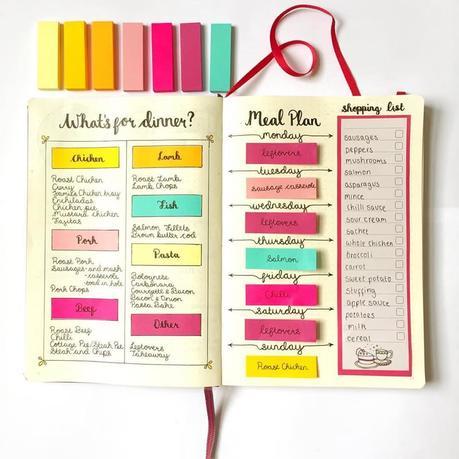 What's for dinner?
Chicken
Roast Chicken
Curry
James Chicken tray
Enchiladas
Chicken pie
Mustard chicken
Fajitas
Pork
Roast Pork
Sausages - and mash
- casserole
- toad in hole
Pork Chops
Beef
Roast Beef
Chilli
Cottage Pie/Steak Pie
Steak and Chips
Lamb
Roast Lamb
Lamb Chops
Fish
Salmon Fillets
Pasta
Bolognese
Carbonara
Courgette & Bacon
Bacon & Onion
Pasta Bake
Other
Leftovers
Takeaway
Meal Plan
monday
leftovers
tuesday
sausage casserole
wednesday
leftovers
thursday
Salmon
friday
Chilli
saturday
leftovers
sunday
Roast Chicken
shopping list
sausages
peppers
mushrooms
salmon
asparagus
mince
chilli sauce
sour cream
sachet
whole chicken
broccoli
carrot
sweet potato
stuffing
apple sauce
potatoes
milk
cereal